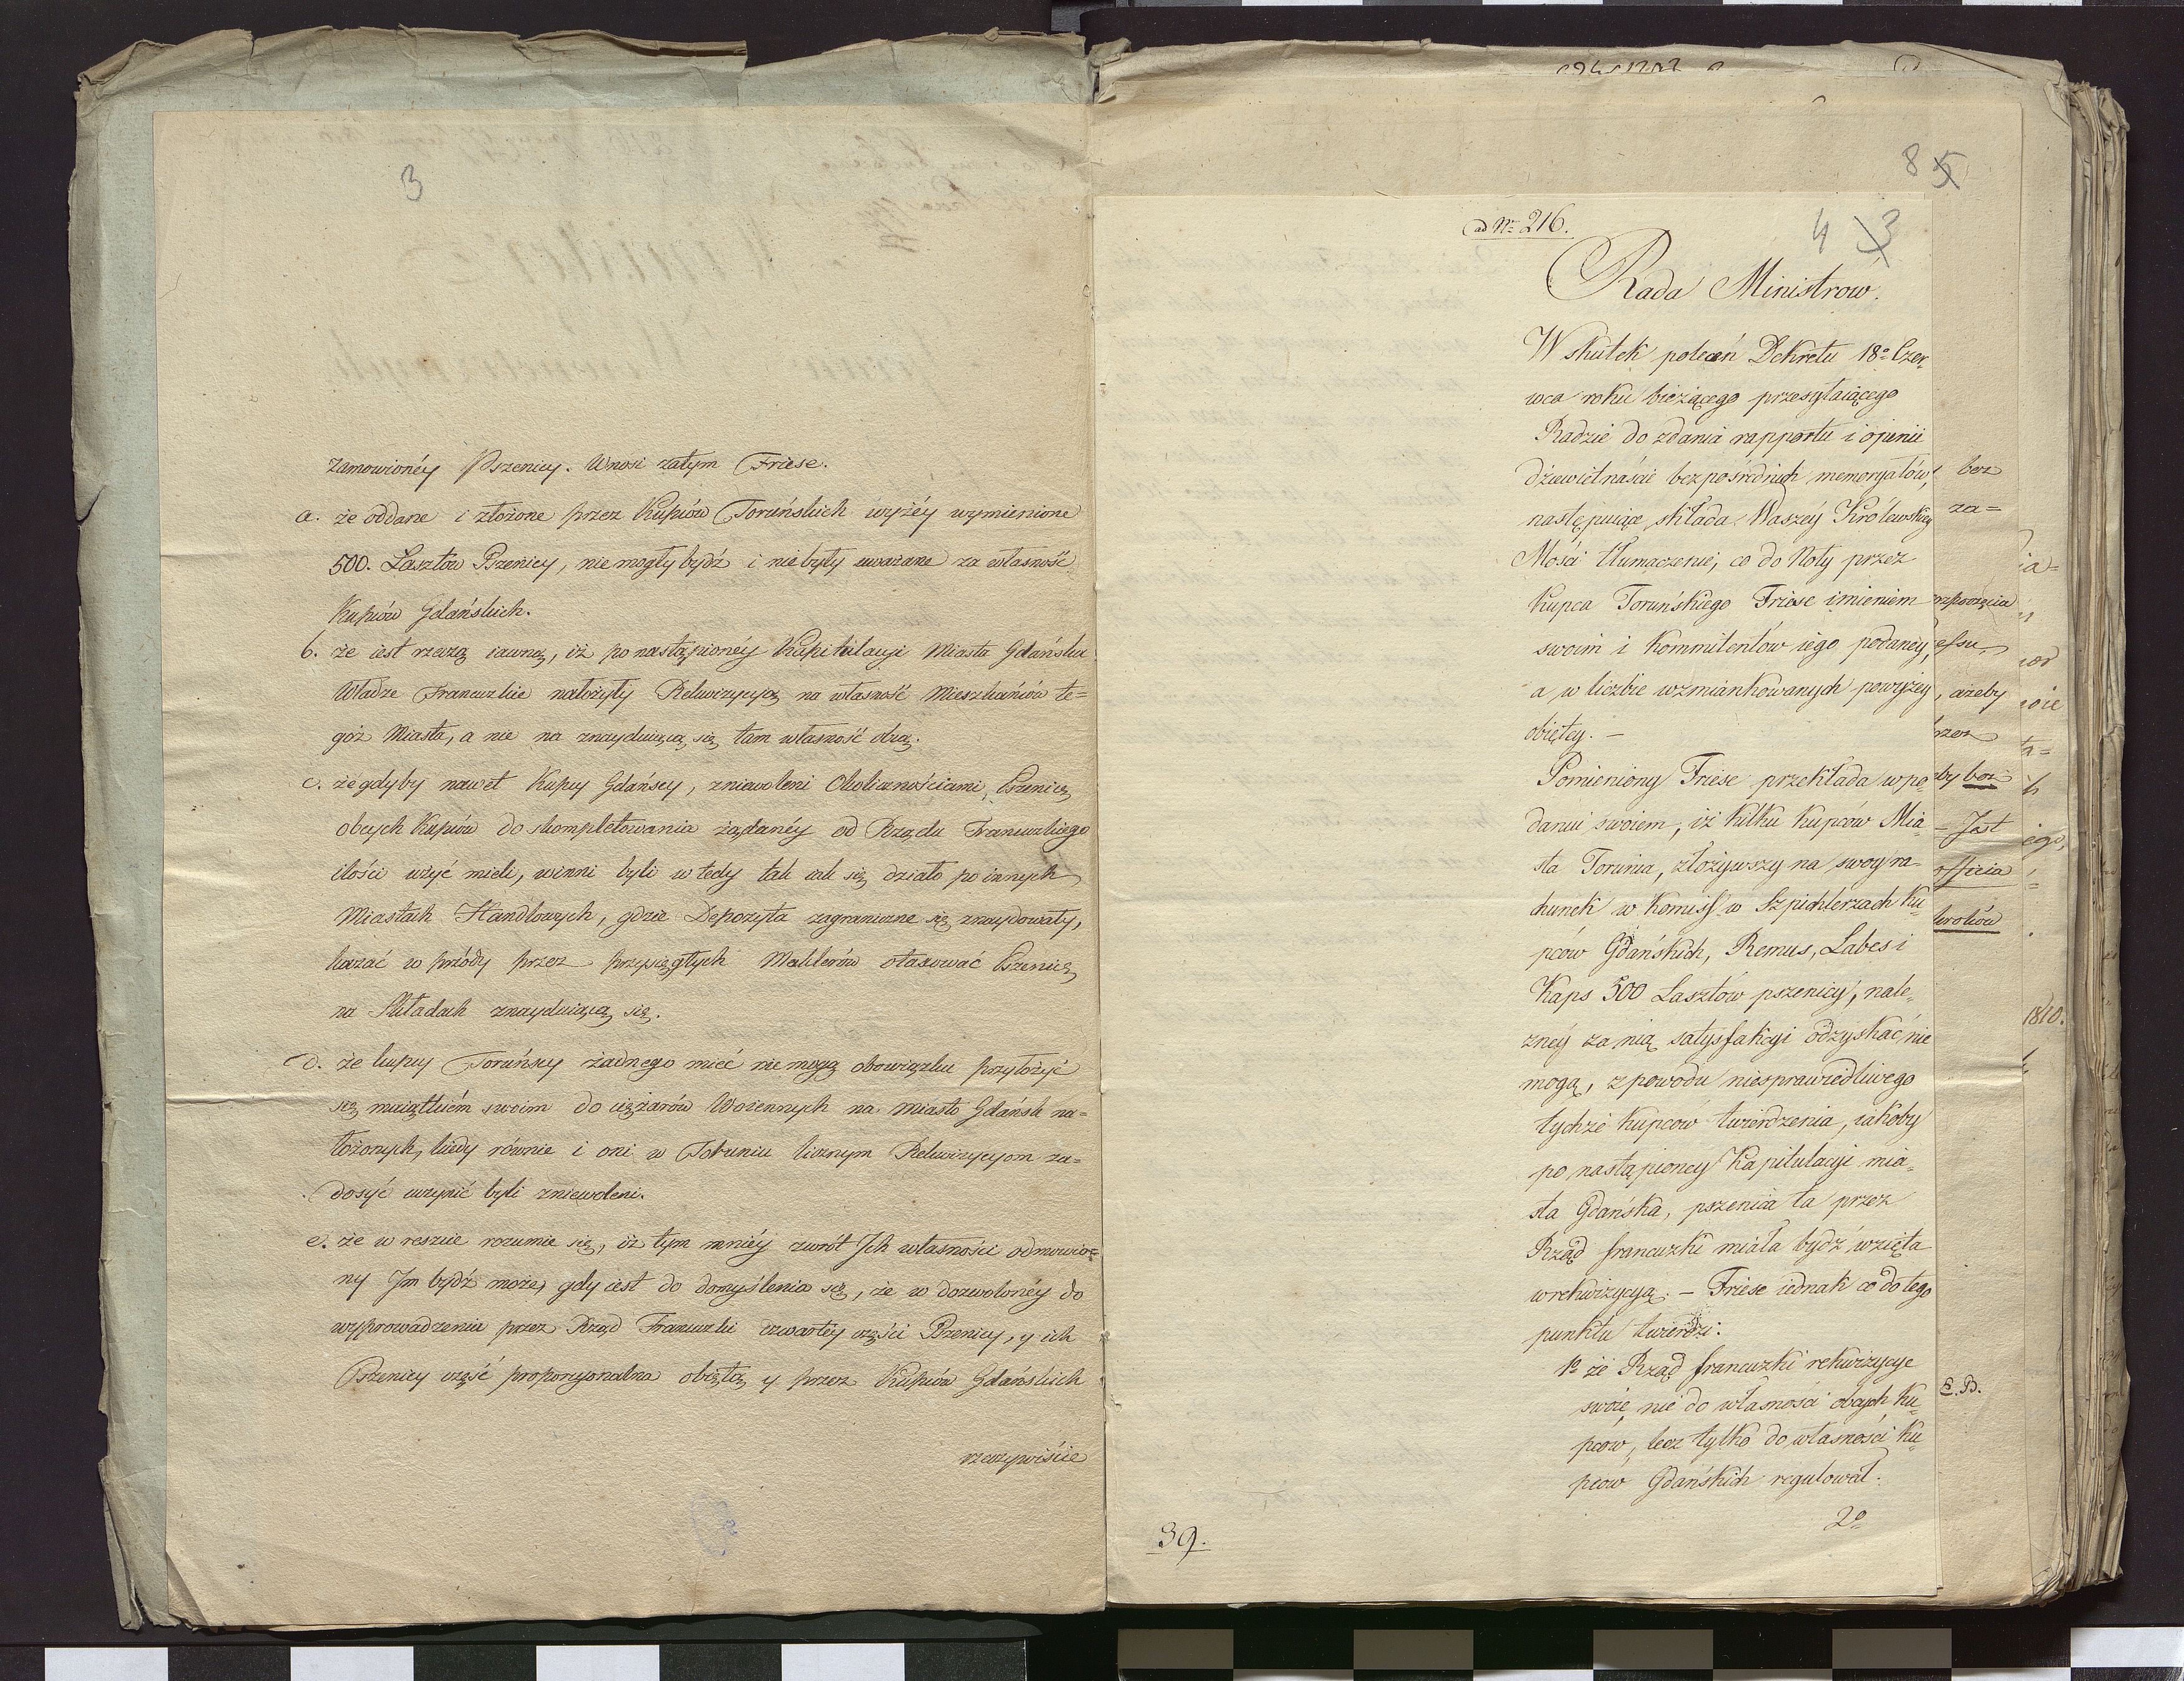 3
zamowionéy Pszenicy. Wnosi zatym Friese.
a. że oddane i złożone przez Kupiów Toruńskich wyżéy wymienione
500. Lasztów Pszenicy, nie mogły bydź i nie były uważane za własność
Kupiów Gdańskich.
b. że iest rzeczą iawną, iż po nastąpionéy Kapitulacyi Miasta Gdańska
Władze Francuzkie nałożyły Rekwizycyą na własność Mieszkańców te=
goż Miasta, a nie na znayduiącą się tam własność obcą.
c. że gdyby nawet Kupcy Gdańscy, zniewoleni Okolicznościami, Pszenicę
obcych Kupców do skompletowania żądanéy od Rządu Francuzkiego
ilości użyć mieli, winni byli wtedy tak iak się działo po innych
Miastach Handlowych, gdzie Depozyta zagraniczne się znaydowały,
kazać w przódy przez przysięgłych Maklerów otaxować Pszenicę
na Składach znayduiącą się.
d. że kupcy Toruńscy żadnego mieć nie mogą obowiązku przyłożyć
się maiątkiém swoim do ciężarów Woiennych na miasto Gdańsk na=
łożonych, kiedy równie i oni w Toruniu licznym Rekwizycyom za=
dosyć uczynić byli zniewoleni.
e. że w reszcie rozumie się, iż tym mniéy zwrót Ich własności odmówio=
ny Im bydź może, gdy iest do domyślenia się, że w dozwolonéy do
wyprowadzenia przez Rząd Francuzki czwartéy części Pszenicy, y ich
Pszenicy część proporcyonalna obiętą y przez Kupców Gdańskich
rzeczywiście
8 5
ad Nr 216.
4 3
Rada Ministrow.
W skutek poleceń Dekretu 18o Czer=
wca roku bieżącego przesyłaiącego
Radzie do zdania rapportu i opinii
dziewiętnaście bezpośrednich memoryałów,
następuiące składa Waszéy Królewskiey
Mości tłumaczenie, co do Noty przez
Kupca Toruńskiego Friese imieniem
swoim i Kommitentów iego podanéy,
a w liczbie wzmiankowanych powyżey
obiętey. —
Pomieniony Friese przekłada w po=
daniu swoiem, iż kilku kupców Mia=
sta Torunia, złożywszy na swoy ra=
chunek w Komiss w Szpichlerzach Ku=
pców Gdańskich, Remus, Labes i
Kaps 500 Lasztów pszenicy, nale=
żnéy za nią satysfakcyi odzyskać nie
mogą, z powodu niesprawiedliwego
tychże kupców twierdzenia, iakoby
po nastąpioney Kapitulacyi mia=
sta Gdańska, pszenica ta przez
Rząd francuzki miała bydź wzięta
w rekwizycyą. — Friese iednak co do tego
punktu twierdzi:
1o że Rząd francuzki rekwizycye
swoie nie do własności obcych Ku=
pców, lecz tylko do własności Ku=
pców Gdańskich regulował.
2o
39.
bez
za=
ażeby
by bez
— Jest
E. B.
1810.